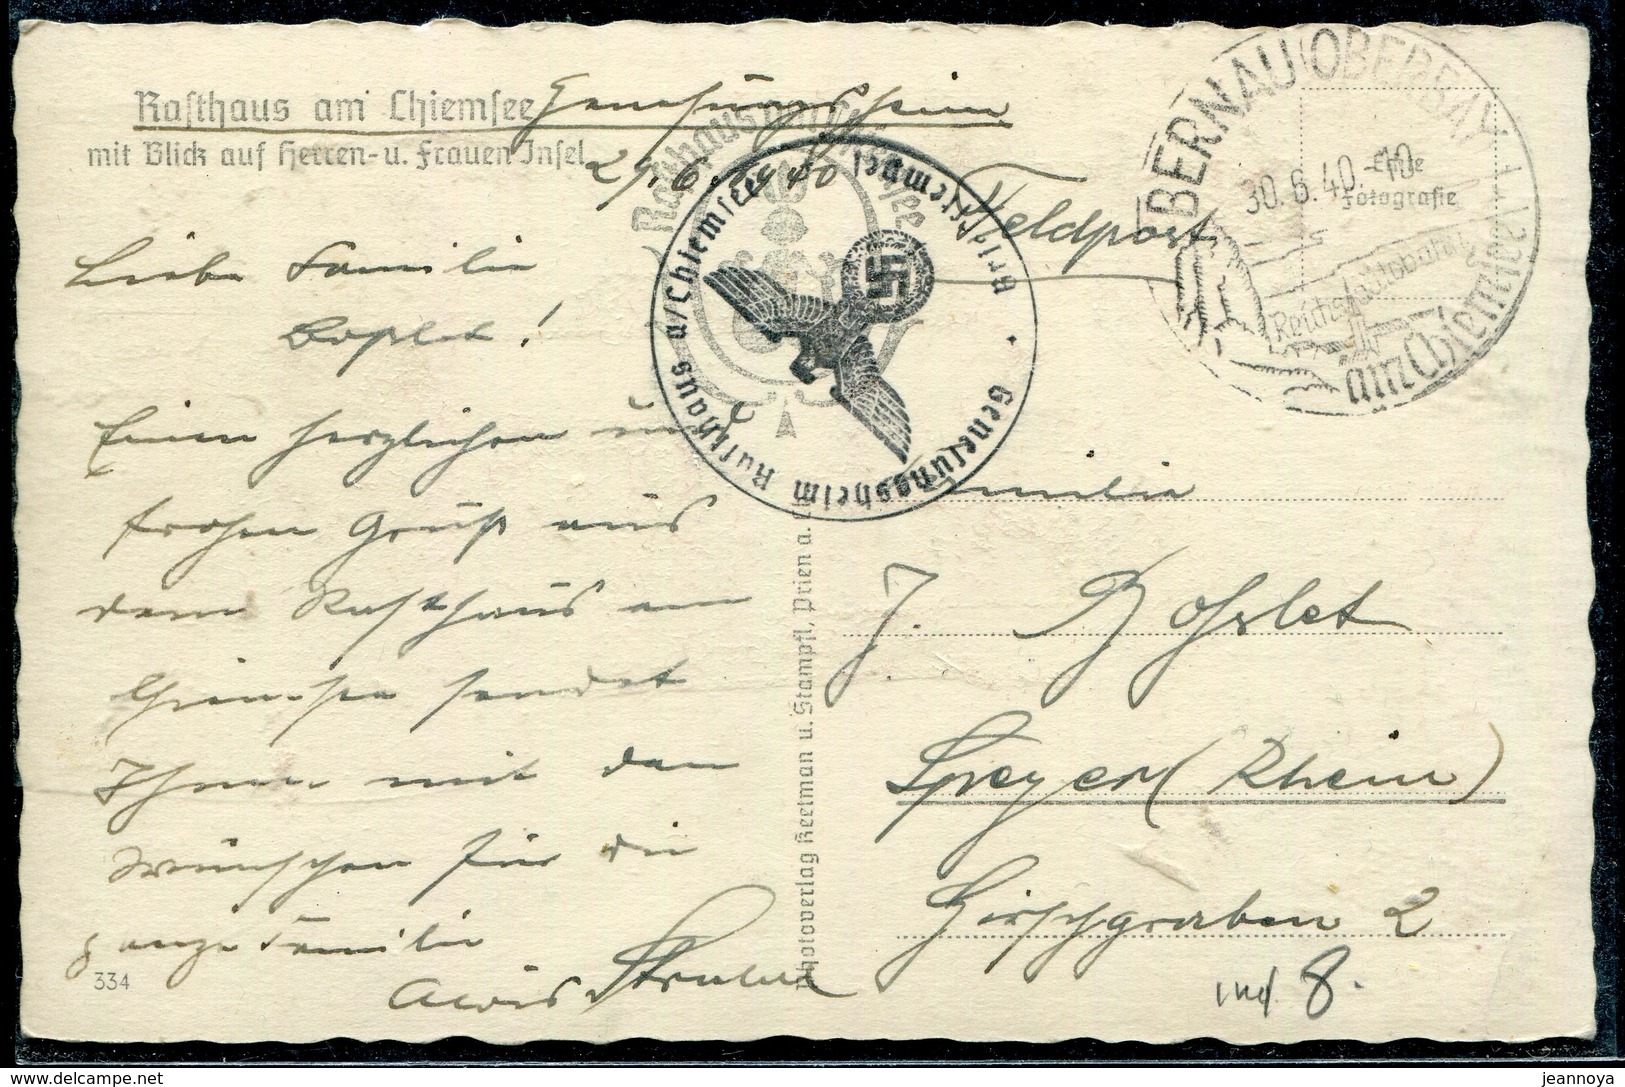 Rasthaus am Chiemsee Genesungsheim
mit Blick auf Herren- u. Frauen Insel
29.6.1940
Feldpost
Rasthaus am Chiemsee
Genesungsheim Rasthaus a/Chiemsee
Briefstempel
BERNAU OBERBAY
30.6.40-10
Echte
Fotografie
Reichsautobahn
am Chiemsee
Liebe Familie
Boßlet!
Einen herzlichen und
frohen Gruß aus
dem Rasthaus am
Chiemsee sendet
Ihnen mit den
Wünschen für die
ganze Familie
Alois
334
Photoverlag Keetman u. Stampfl, Prien a. Ch
Familie
J. Boßlet
Speyer (Rhein)
Hirschgraben 2
8.
jeannoya